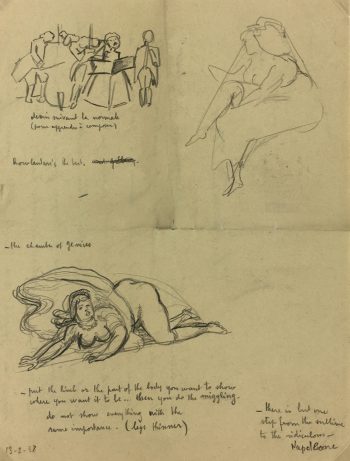 dessin suivant la normale
(pour apprendre à composer)
the best,
- the chamber of genius
- put the limb or the part of the body you want to show
where you want it to be... then you do the wiggling.
do not show everything with the
same importance. (legs thinner)
- there is but one
step from the sublime
to the ridiculous -
Napoléone
13-2-38